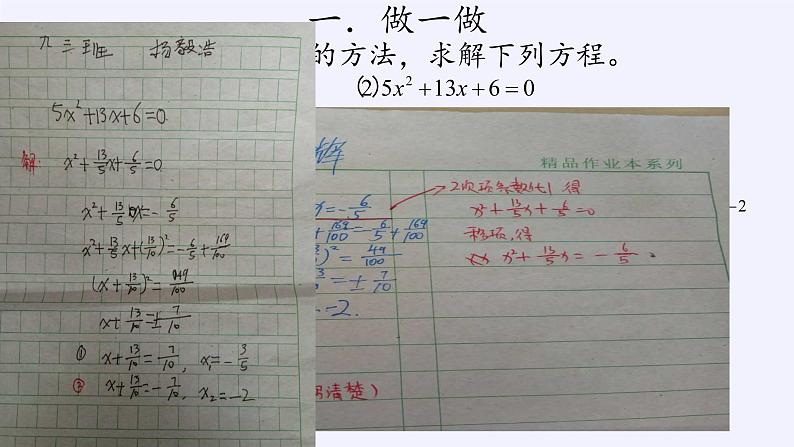 一．做一做
的方法，求解下列方程。
(2)5x²+13x+6=0
九三班 杨毅浩
5x²+13x+6=0.
解: x²+13/5x+6/5=0
x²+13/5x=-6/5
x²+13/5x+(13/10)²=-6/5+169/100
(x+13/10)²=49/100
x+13/10=±7/10
① x+13/10=7/10, x₁=-3/5
② x+13/10=-7/10, x₂=-2
精品作业本系列
x=-6/5
+169/100=-6/5+169/100
)²=49/100
=±7/10
-2.
清楚)
2次项系数化1 得
x²+13/5x+6/5=0
移项,得
x²+13/5x=-6/5
-2